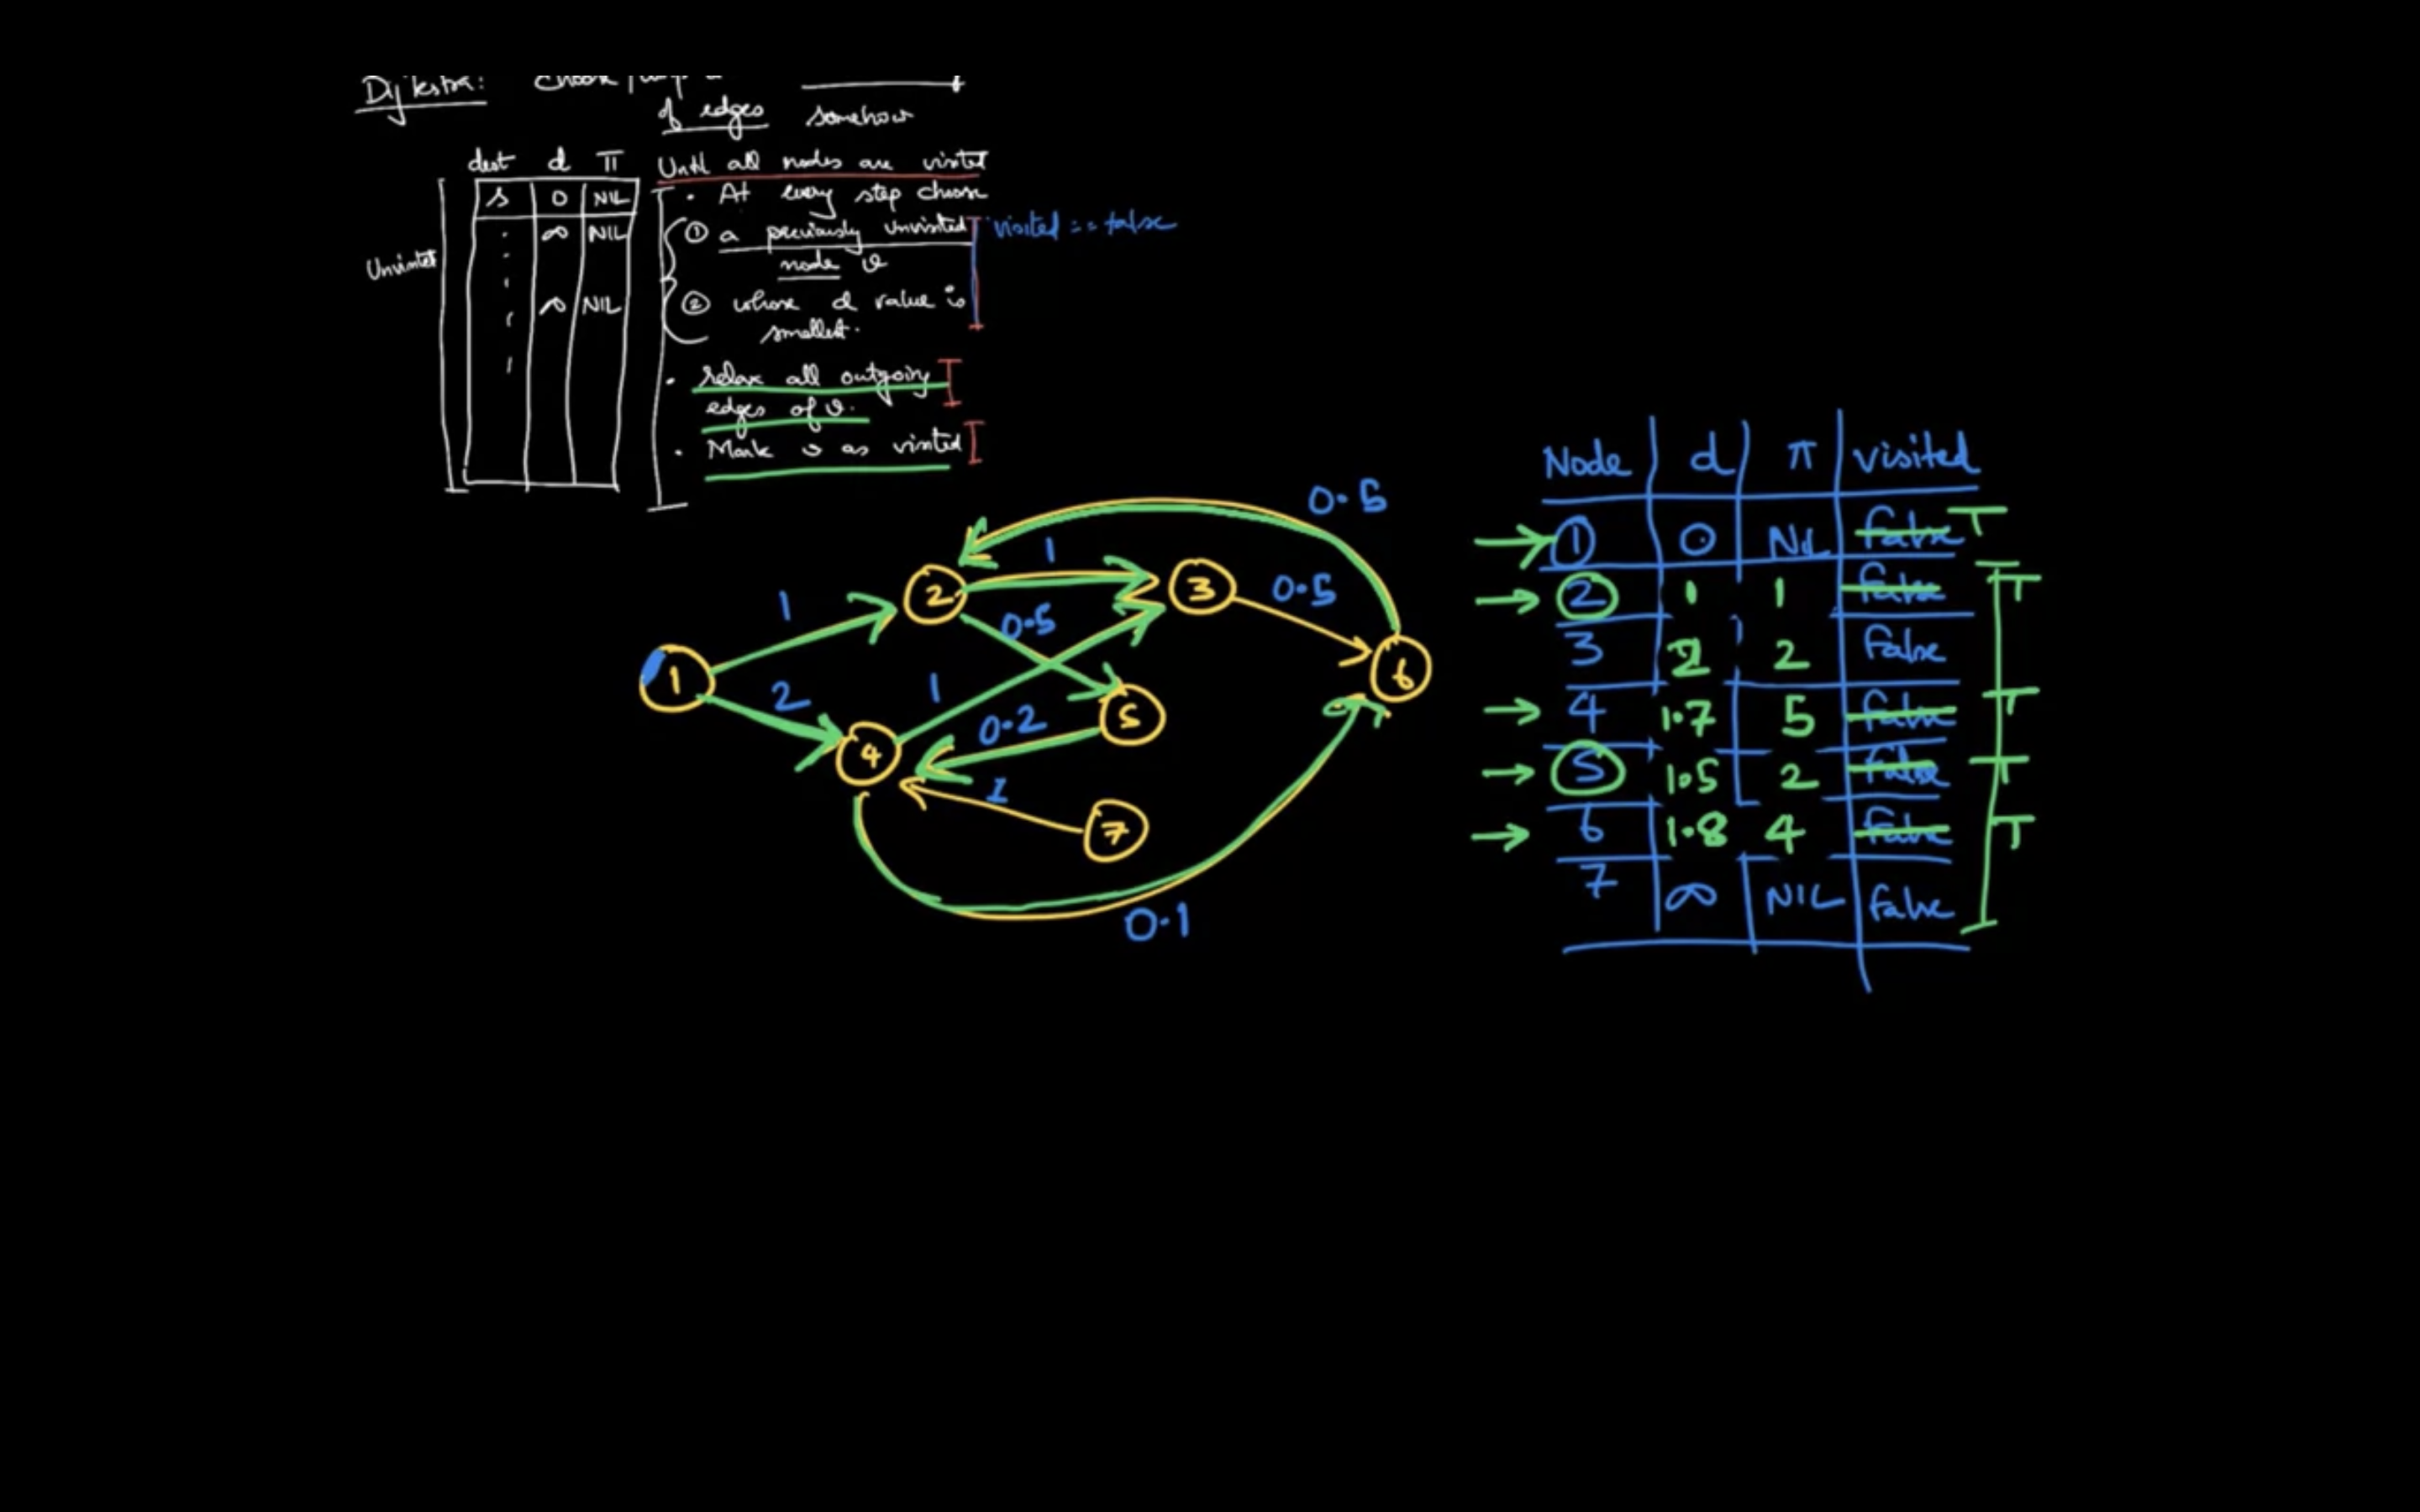 Dijkstra: Choose
of edges somehow
dest d π
s 0 NIL
∞ NIL
∞ NIL
Unvisited
Until all nodes are visited
• At every step choose
① a previously unvisited
node v
② whose d value is
smallest.
visited == false
• relax all outgoing
edges of v.
• Mark v as visited
0.5
1
2
3
0.5
1
0.5
1
6
2
1
5
0.2
4
1
7
0.1
Node d π visited
1 0 NIL false T
2 1 1 false T
3 2 2 false
4 1.7 5 false T
5 1.5 2 false T
6 1.8 4 false T
7 ∞ NIL false